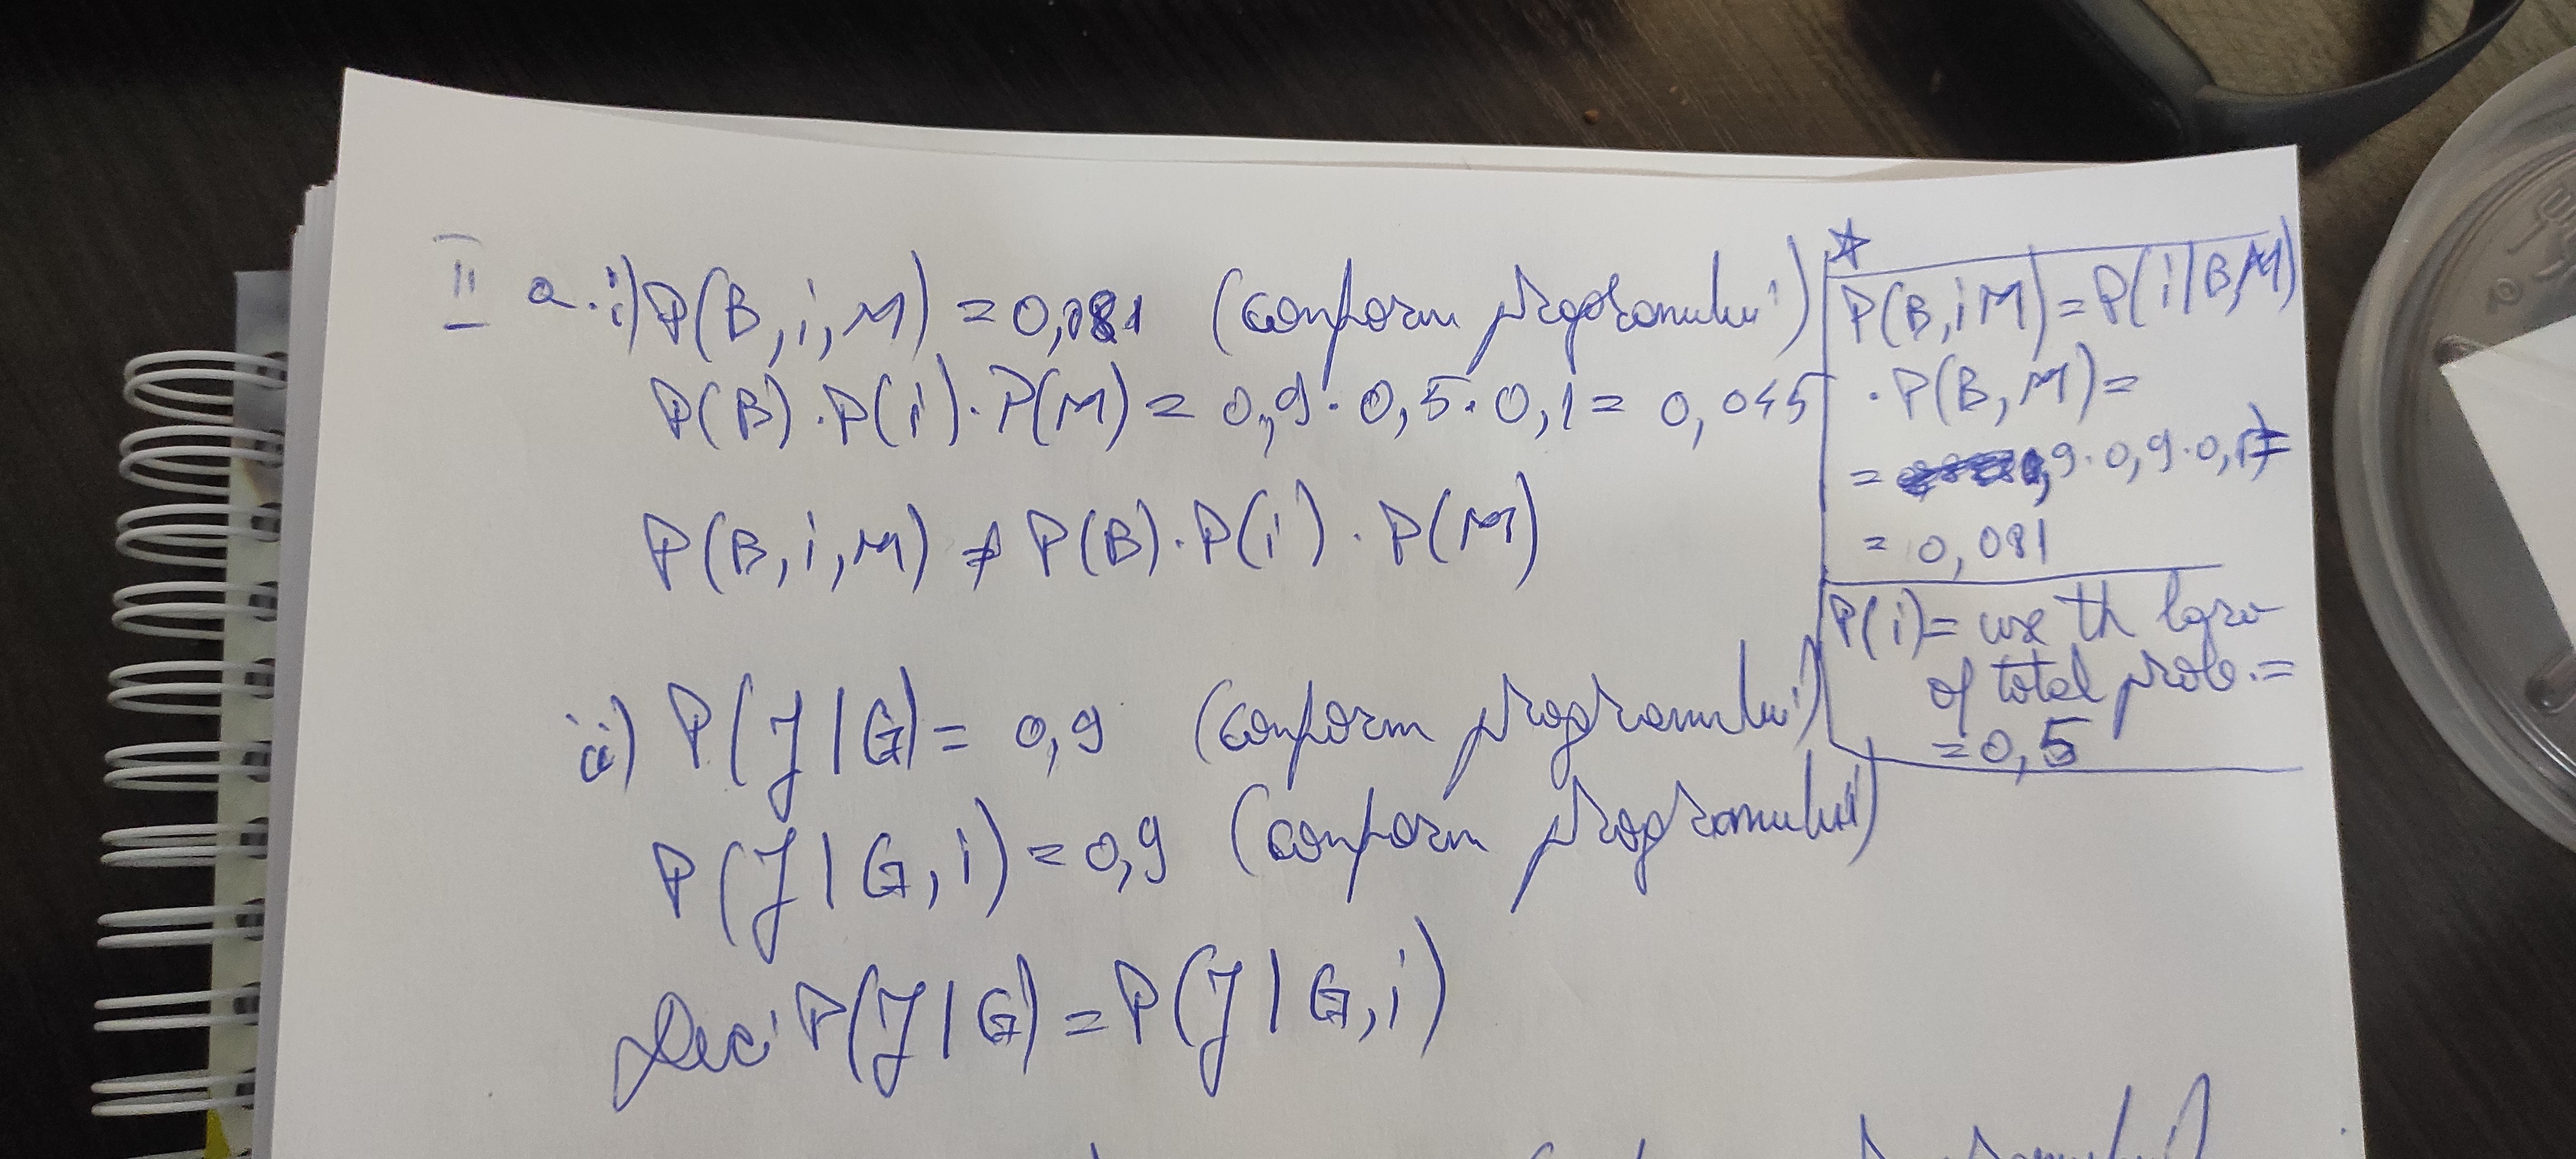 II a. i) P(B, i, M) = 0,081 (conform programului)
P(B) · P(i) · P(M) = 0,9 · 0,5 · 0,1 = 0,045
P(B, i, M) ≠ P(B) · P(i) · P(M)
ii) P(J | G) = 0,9 (conform programului)
P(J | G, i) = 0,9 (conform programului)
Deci P(J | G) = P(J | G, i)
☆
P(B, i M) = P(i | B, M)
· P(B, M) =
= ,9 · 0,9 · 0,1 =
= 0,081
P(i) = use th law
of total prob. =
= 0,5